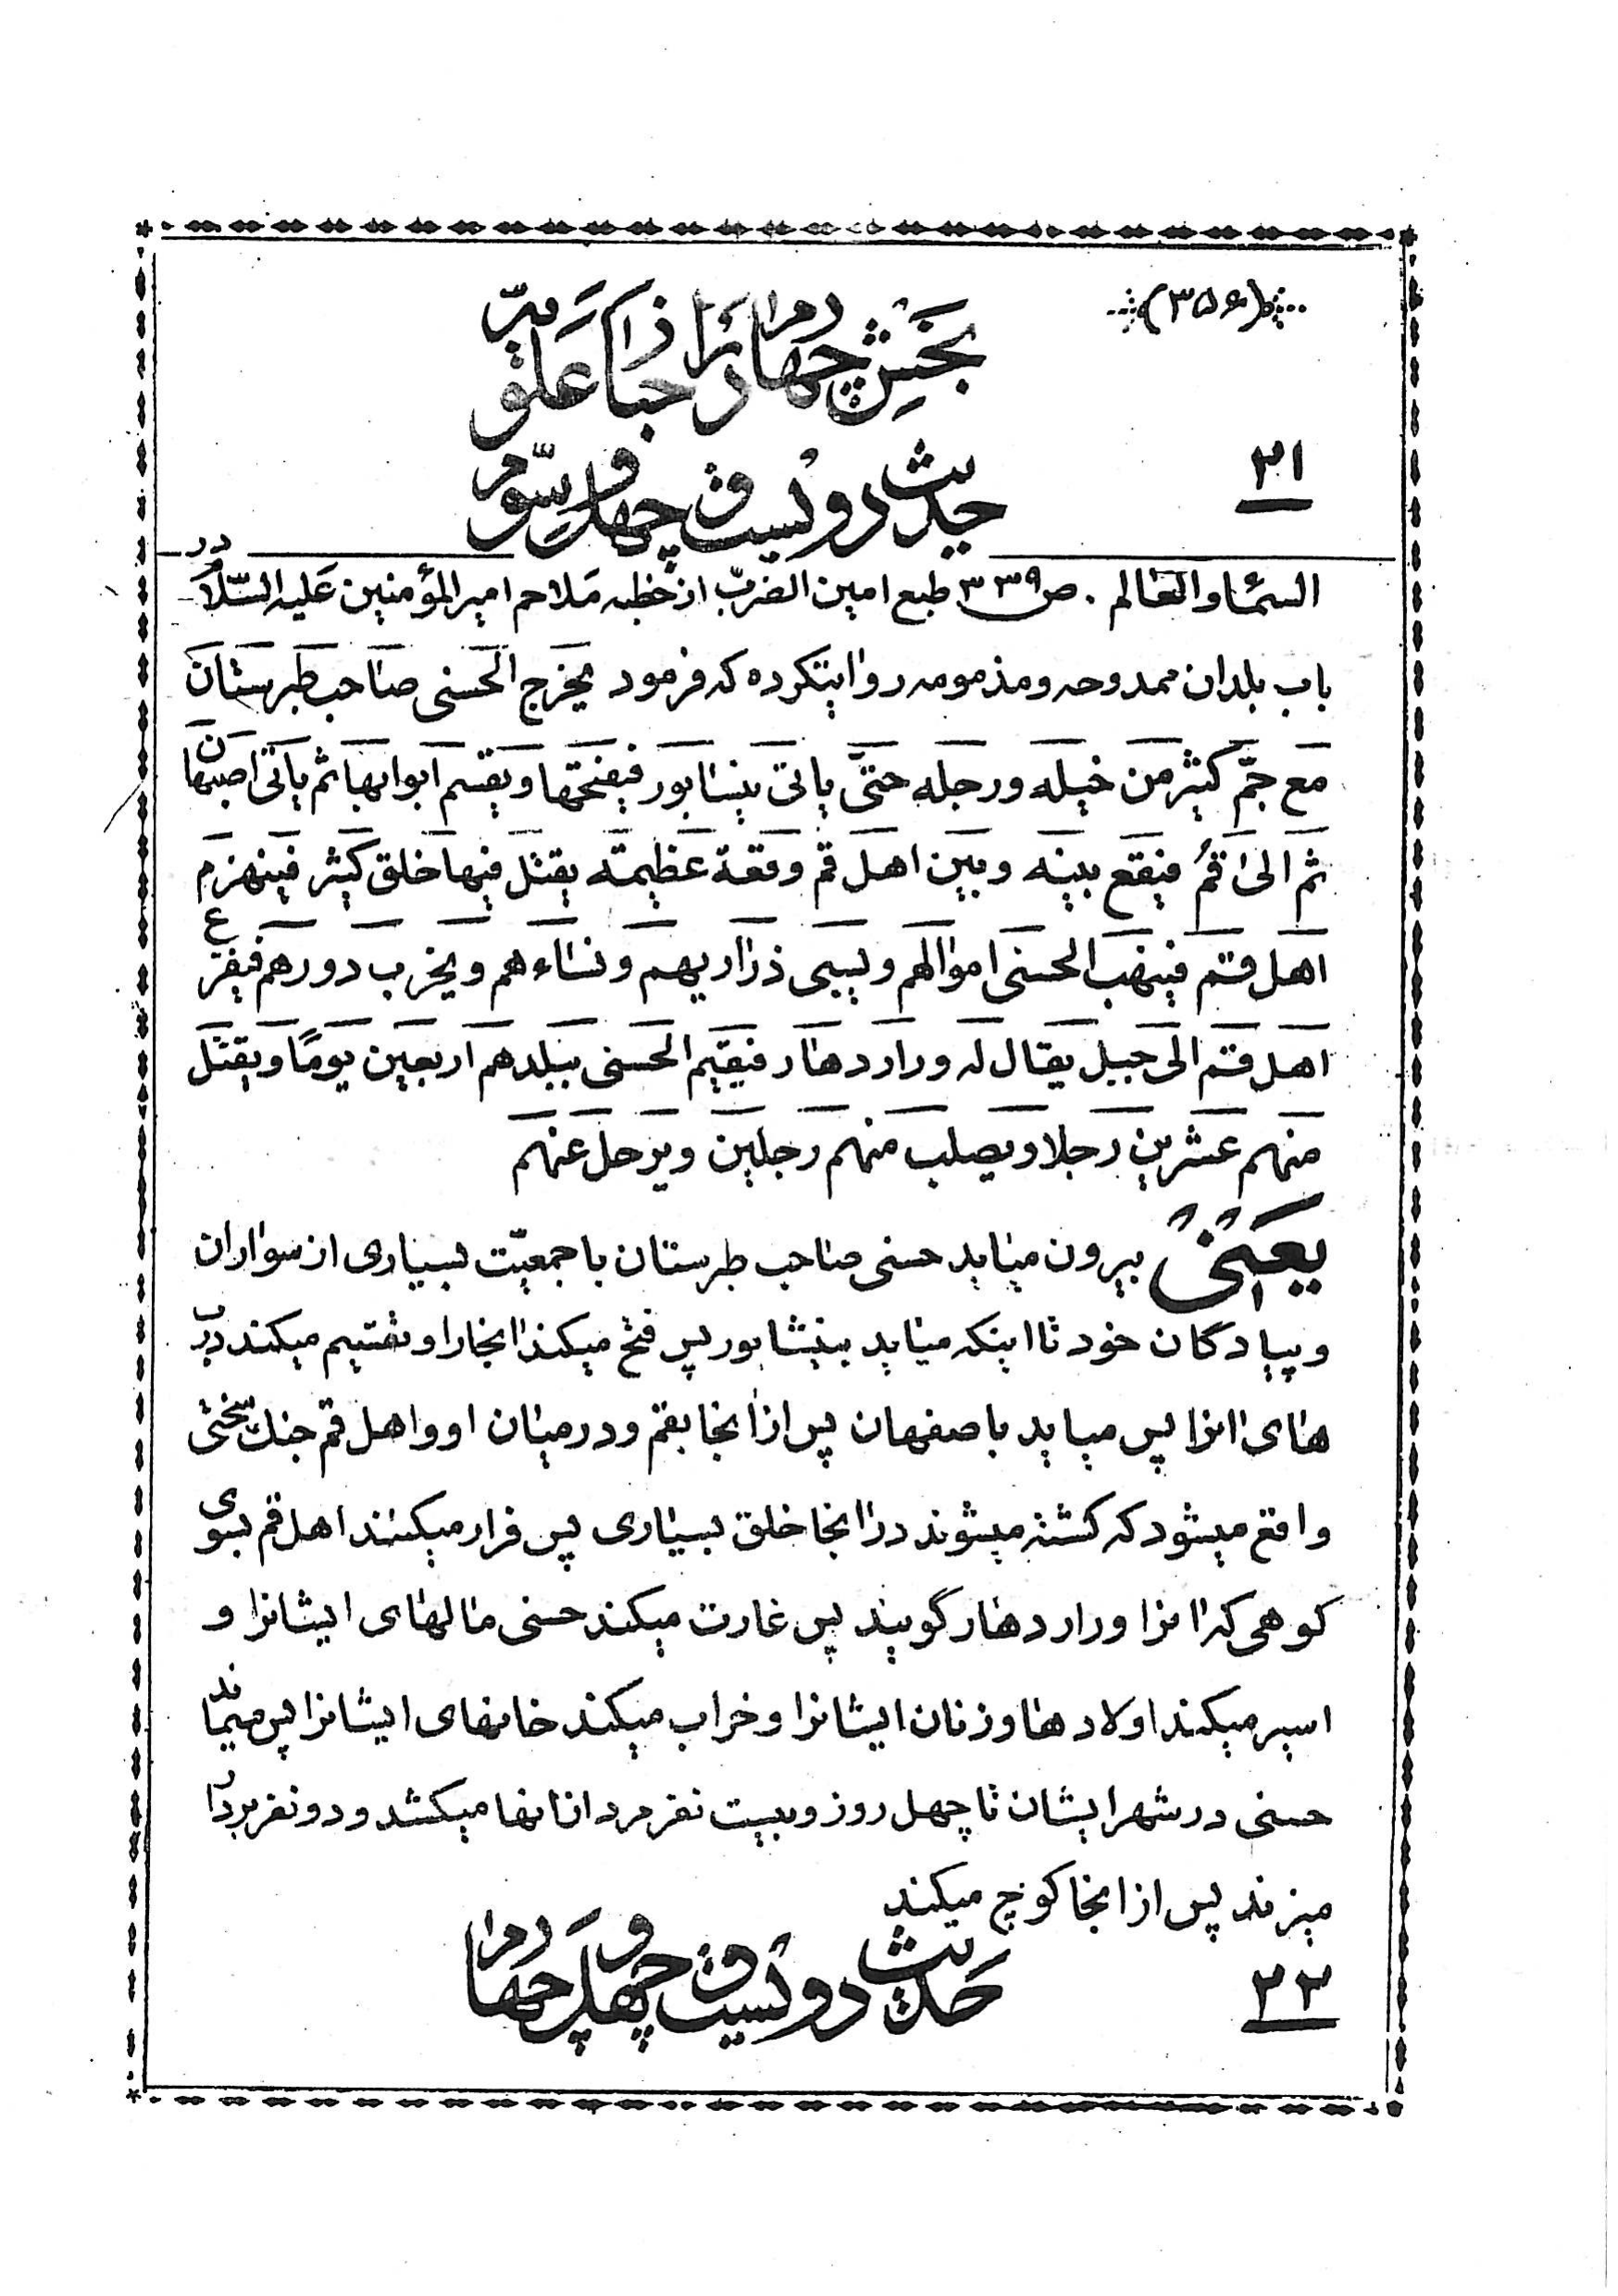 (۳۵۶)
بخش چهارم از اخبار علوّیه
۲۱
حدیث دویست و چهل و سوّم
السّماء والعالم . ص ۳۳۹ طبع امین الضّرب از خطبه ملاحم امیر المؤمنین علیه السّلام در
باب بلدان ممدوحه و مذمومه روایتکرده که فرمود یخرج الحسنی صاحب طبرستان
مع جمّ کثیر من خیله ورجله حتّی یاتی نیسابور فیفتحها ویقسم ابوابها ثم یاتی اصبهان
ثم الی قم فیقع بینه وبین اهل قم وقعة عظیمة یقتل فیها خلق کثیر فینهزم
اهل قم فینهب الحسنی اموالهم ویسبی ذراریهم ونساءهم ویخرب دورهم فیفزع
اهل قم الی جبل یقال له وراردهار فیقیم الحسنی ببلدهم اربعین یومًا ویقتل
منهم عشرین رجلا ویصلب منهم رجلین ویرحل عنهم
یعنی بیرون میاید حسنی صاحب طبرستان با جمعیّت بسیاری از سواران
و پیادگان خود تا اینکه میاید بنیشابور پس فتح میکند انجا را و تقسیم میکند درب
های انرا پس میاید باصفهان پس از انجا بقم و در میان او و اهل قم جنک سختی
واقع میشود که کشته میشوند در انجا خلق بسیاری پس فرار میکنند اهل قم بسوی
کوهی که انرا وراردهار گویند پس غارت میکند حسنی مالهای ایشانرا و
اسیر میکند اولادها و زنان ایشانرا و خراب میکند خانهای ایشانرا پس میماند
حسنی در شهر ایشان تا چهل روز و بیست نفر مرد از انها میکشد و دو نفر بردار
میزند پس از انجا کوچ میکند
۲۲
حدیث دویست و چهل و چهارم